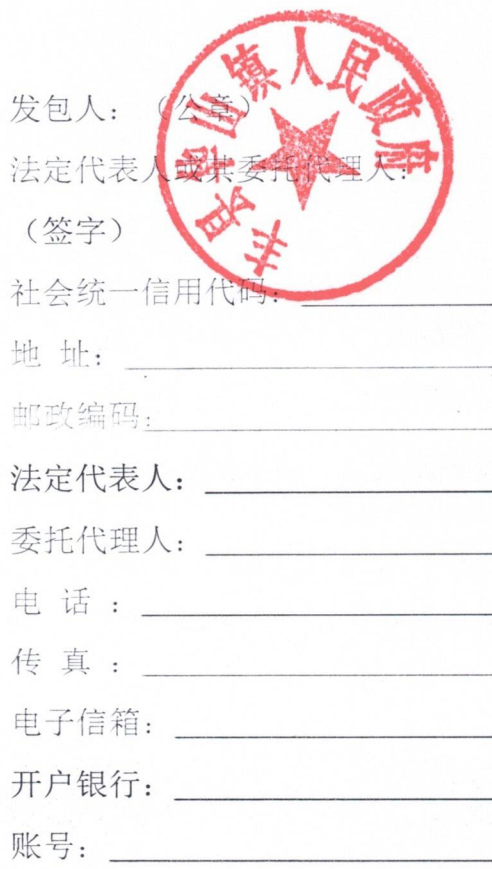 发包人：（公章）
法定代表人或其委托代理人：
（签字）
社会统一信用代码：
地 址：
邮政编码：
法定代表人：
委托代理人：
电 话 ：
传 真 ：
电子信箱：
开户银行：
账号：
丰县华山镇人民政府